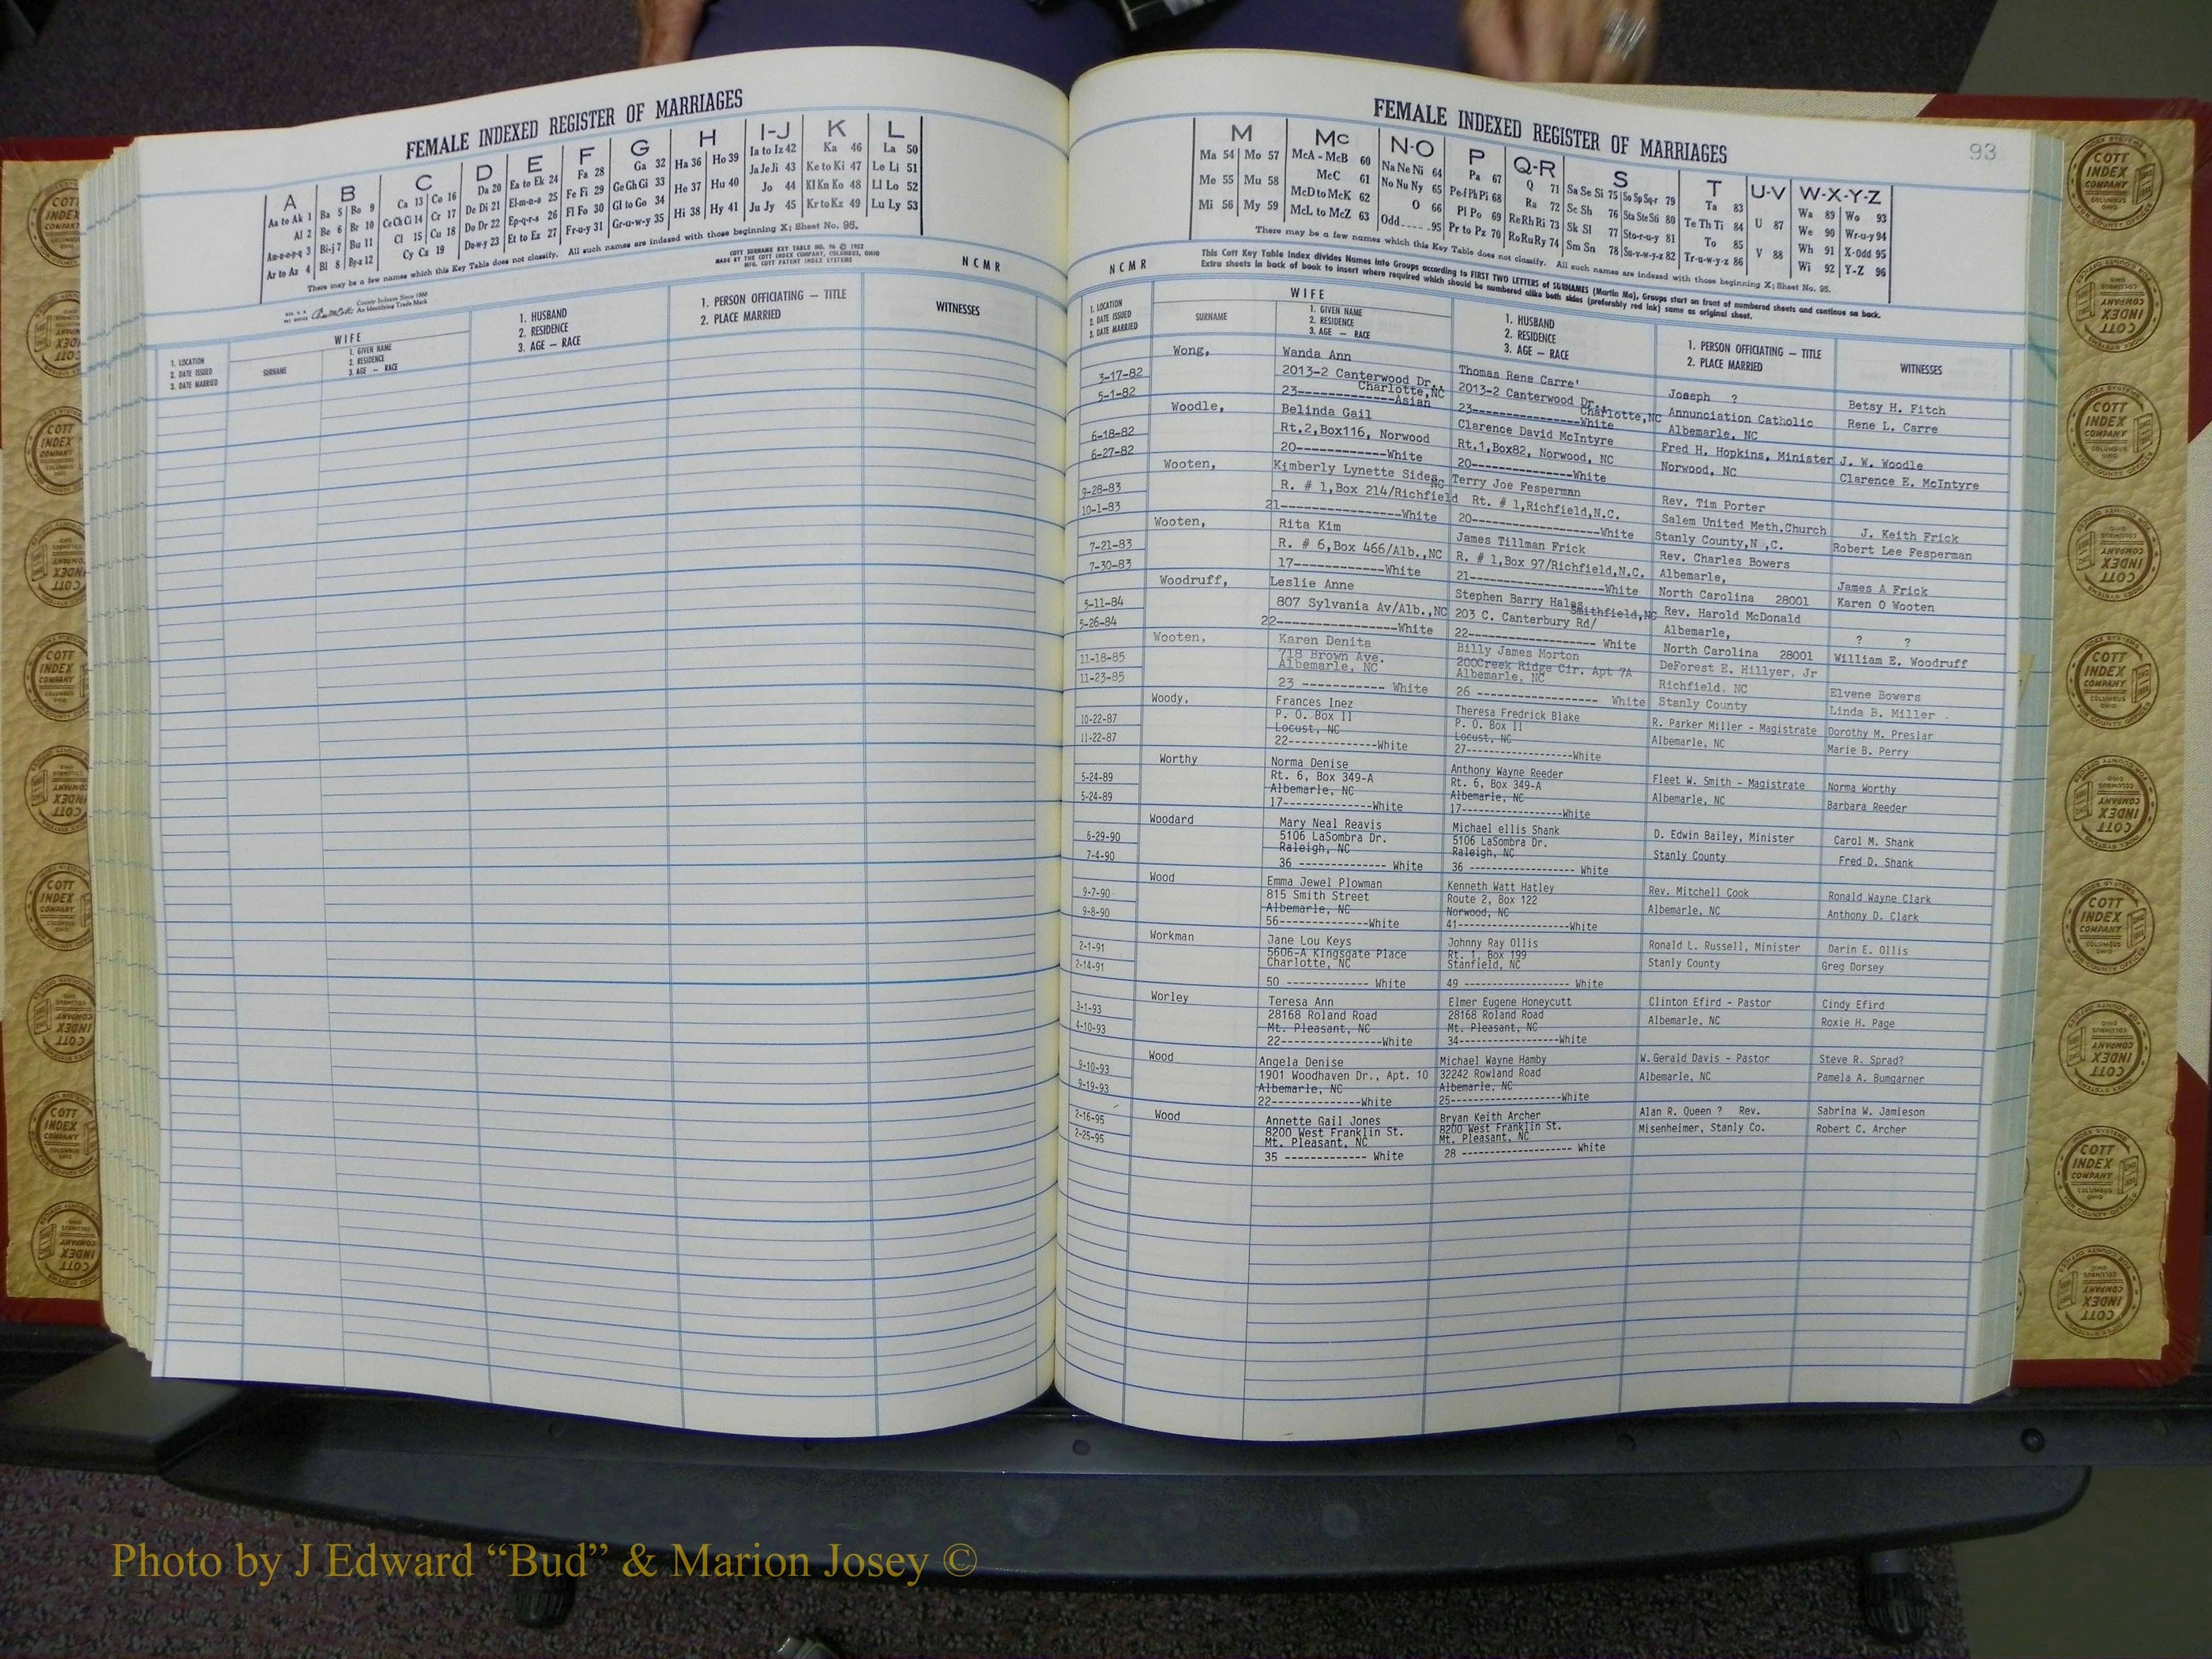 FEMALE INDEXED REGISTER OF MARRIAGES
A B C D E F G H I-J K L
Aa to Ak 1 Ba 5 Bo 9 Ca 13 Co 16 Da 20 Ea to Ek 24 Fa 28 Ga 32 Ha 36 Ho 39 Ia to Iz 42 Ka 46 La 50
Al 2 Be 6 Br 10 Ce Ch Ci 14 Cr 17 De Di 21 El-m-n-o 25 Fe Fi 29 Ge Gh Gi 33 He 37 Hu 40 Ja Je Ji 43 Ke to Ki 47 Le Li 51
Am-n-o-p-q 3 Bi-j 7 Bu 11 Cl 15 Cu 18 Do Dr 22 Ep-q-r-s 26 Fl Fo 30 Gl to Go 34 Hi 38 Hy 41 Jo 44 Kl Kn Ko 48 Ll Lo 52
Ar to Az 4 Bl 8 By-z 12 Cy Cz 19 Du-w-y 23 Et to Ez 27 Fr-u-y 31 Gr-u-w-y 35 Ju Jy 45 Kr to Kz 49 Lu Ly 53
There may be a few names which this Key Table does not classify. All such names are indexed with those beginning X; Sheet No. 95.
COTT SURNAME KEY TABLE NO. 96 © 1952
MADE BY THE COTT INDEX COMPANY, COLUMBUS, OHIO
MFG. COTT PATENT INDEX SYSTEMS
NCMR
County Indexes Since 1888
An Identifying Trade Mark
1. LOCATION
2. DATE ISSUED
3. DATE MARRIED
WIFE
SURNAME
1. GIVEN NAME
2. RESIDENCE
3. AGE — RACE
1. HUSBAND
2. RESIDENCE
3. AGE — RACE
1. PERSON OFFICIATING — TITLE
2. PLACE MARRIED
WITNESSES
FEMALE INDEXED REGISTER OF MARRIAGES
93
M Mc N-O P Q-R S T U-V W-X-Y-Z
Ma 54 Mo 57 McA - McB 60 Na Ne Ni 64 Pa 67 Q 71 Sa Se Si 75 So Sp Sq-r 79 Ta 83 U 87 Wa 89 Wo 93
Me 55 Mu 58 McC 61 No Nu Ny 65 Pe-f Ph Pi 68 Ra 72 Sc Sh 76 Sta Ste Sti 80 Te Th Ti 84 V 88 We 90 Wr-u-y 94
Mi 56 My 59 McD to McK 62 O 66 Pl Po 69 Re Rh Ri 73 Sk Sl 77 Sto-r-u-y 81 To 85 Wh 91 X-Odd 95
McL to McZ 63 Odd 95 Pr to Pz 70 Ro Ru Ry 74 Sm Sn 78 Su-v-w-y-z 82 Tr-u-w-y-z 86 Wi 92 Y-Z 96
There may be a few names which this Key Table does not classify. All such names are indexed with those beginning X; Sheet No. 95.
This Cott Key Table Index divides Names into Groups according to FIRST TWO LETTERS of SURNAMES (Martin Ma), Groups start on front of numbered sheets and continue on back.
Extra sheets in back of book to insert where required which should be numbered alike both sides (preferably red ink) same as original sheet.
NCMR
1. LOCATION
2. DATE ISSUED
3. DATE MARRIED
WIFE
SURNAME
1. GIVEN NAME
2. RESIDENCE
3. AGE — RACE
1. HUSBAND
2. RESIDENCE
3. AGE — RACE
1. PERSON OFFICIATING — TITLE
2. PLACE MARRIED
WITNESSES
Wong, Wanda Ann Thomas Rene Carre' Joseph ? Betsy H. Fitch
3-17-82 2013-2 Canterwood Dr., Charlotte,NC 2013-2 Canterwood Dr., Charlotte,NC Annunciation Catholic Rene L. Carre
5-1-82 23--------------Asian 23--------------White Albemarle, NC
Woodle, Belinda Gail Clarence David McIntyre Fred H. Hopkins, Minister J. W. Woodle
6-18-82 Rt.2,Box116, Norwood Rt.1,Box82, Norwood, NC Norwood, NC Clarence E. McIntyre
6-27-82 20--------------White 20--------------White
Wooten, Kimberly Lynette Sides Terry Joe Fesperman Rev. Tim Porter
9-28-83 R. # 1,Box 214/Richfield NC Rt. # 1,Richfield,N.C. Salem United Meth.Church J. Keith Frick
10-1-83 21----------------White 20----------------White Stanly County,N.,C. Robert Lee Fesperman
Wooten, Rita Kim James Tillman Frick Rev. Charles Bowers
7-21-83 R. # 6,Box 466/Alb.,NC R. # 1,Box 97/Richfield,N.C. Albemarle, James A Frick
7-30-83 17-------------White 21-----------------White North Carolina 28001 Karen O Wooten
Woodruff, Leslie Anne Stephen Barry Hales Rev. Harold McDonald
5-11-84 807 Sylvania Av/Alb.,NC 203 C. Canterbury Rd/ Smithfield,NC Albemarle, ? ?
5-26-84 22-----------------White 22----------------- White North Carolina 28001 William E. Woodruff
Wooten, Karen Denita Billy James Morton DeForest E. Hillyer, Jr
11-18-85 718 Brown Ave. 200Creek Ridge Cir. Apt 7A Richfield, NC Elvene Bowers
Albemarle, NC Albemarle, NC
11-23-85 23 ------------ White 26 ----------------- White Stanly County Linda B. Miller
Woody, Frances Inez Theresa Fredrick Blake R. Parker Miller - Magistrate Dorothy M. Preslar
10-22-87 P. O. Box 11 P. O. Box 11
Locust, NC Locust, NC Albemarle, NC Marie B. Perry
11-22-87 22--------------White 27------------------White
Worthy Norma Denise Anthony Wayne Reeder Fleet W. Smith - Magistrate Norma Worthy
5-24-89 Rt. 6, Box 349-A Rt. 6, Box 349-A
5-24-89 Albemarle, NC Albemarle, NC Albemarle, NC Barbara Reeder
17--------------White 17------------------White
Woodard Mary Neal Reavis Michael ellis Shank D. Edwin Bailey, Minister Carol M. Shank
6-29-90 5106 LaSombra Dr. 5106 LaSombra Dr.
7-4-90 Raleigh, NC Raleigh, NC Stanly County Fred D. Shank
36 -------------- White 36 ------------------ White
Wood Emma Jewel Plowman Kenneth Watt Hatley Rev. Mitchell Cook Ronald Wayne Clark
9-7-90 815 Smith Street Route 2, Box 122
9-8-90 Albemarle, NC Norwood, NC Albemarle, NC Anthony D. Clark
56--------------White 41------------------White
Workman Jane Lou Keys Johnny Ray Ollis Ronald L. Russell, Minister Darin E. Ollis
2-1-91 5606-A Kingsgate Place Rt. 1, Box 199
2-14-91 Charlotte, NC Stanfield, NC Stanly County Greg Dorsey
50 ------------- White 49 ------------------ White
Worley Teresa Ann Elmer Eugene Honeycutt Clinton Efird - Pastor Cindy Efird
3-1-93 28168 Roland Road 28168 Roland Road
4-10-93 Mt. Pleasant, NC Mt. Pleasant, NC Albemarle, NC Roxie H. Page
22---------------White 34----------------White
Wood Angela Denise Michael Wayne Hamby W. Gerald Davis - Pastor Steve R. Sprad?
9-10-93 1901 Woodhaven Dr., Apt. 10 32242 Rowland Road
9-19-93 Albemarle, NC Albemarle, NC Albemarle, NC Pamela A. Bumgarner
22--------------White 25------------------White
2-16-95 Wood Annette Gail Jones Bryan Keith Archer Alan R. Queen ? Rev. Sabrina W. Jamieson
2-25-95 8200 West Franklin St. 8200 West Franklin St. Misenheimer, Stanly Co. Robert C. Archer
Mt. Pleasant, NC Mt. Pleasant, NC
35 ------------- White 28 ------------------ White
COTT
INDEX
COMPANY
COLUMBUS
OHIO
Photo by J Edward “Bud” & Marion Josey ©